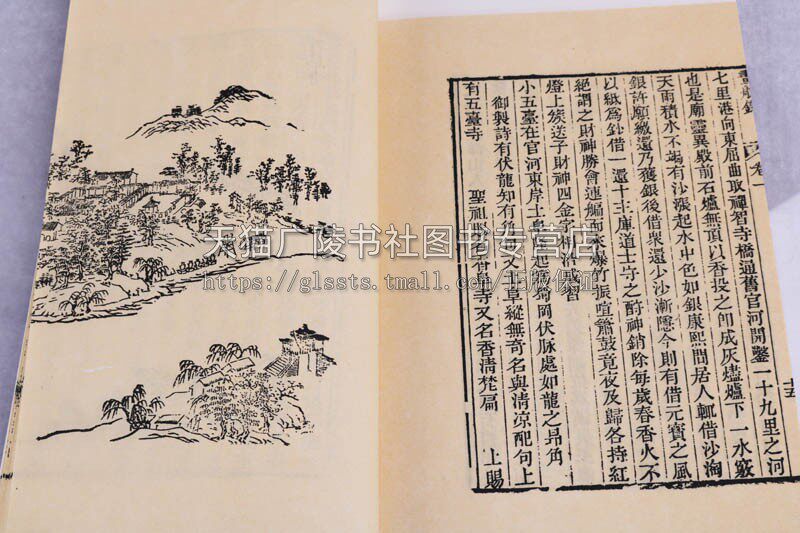 畫舫錄 卷一 十五
七里港向東屈曲取禪智寺橋通舊官河開鑿一十九里之河
也是廟靈異殿前石爐無頂以香投之卽成灰燼爐下一水竅
天雨積水不竭有沙漲起水中色如銀康熙間居人輒借沙淘
銀許願繳還乃獲銀後借衆還少沙漸隱今則有借元寶之風
以紙爲鈔借一還十主庫道士守之酧神銷除每歲春香火不
絕謂之財神勝會連艑而來爆竹振喧簫鼓竟夜及歸各持紅
燈上簇送子財神四金字相沿成習
小五臺在官河東岸土阜隆起蜀岡伏脉處如龍之昂角
御製詩有伏龍知有角句又土阜縱無奇名與清凉配句上
有五臺寺 聖祖賜名香阜寺又名香清梵扁 上賜
天猫广陵书社图书专营店
https://glssts.tmall.com/正版保证